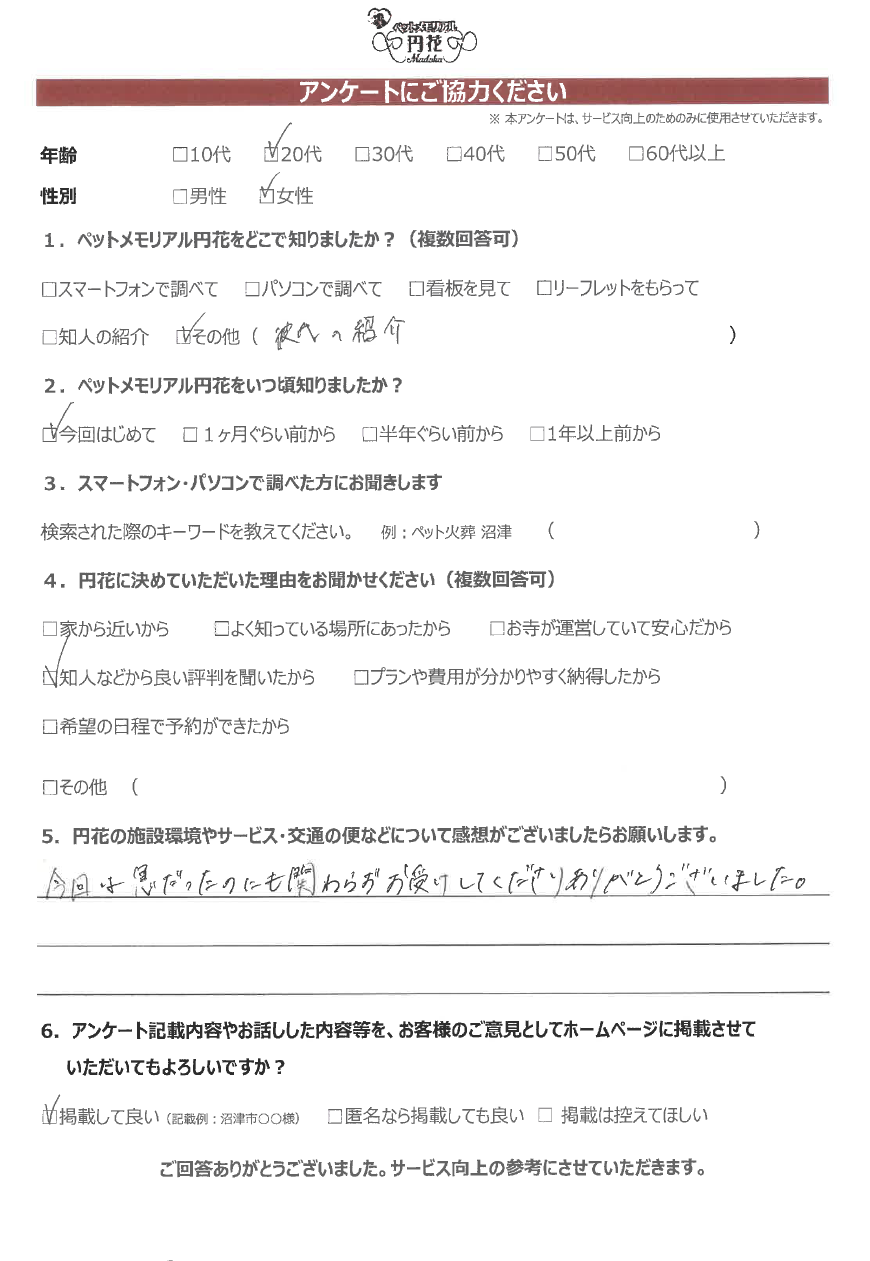 ペットメモリアル
円花
Madoka
アンケートにご協力ください
※ 本アンケートは、サービス向上のためのみに使用させていただきます。
年齢 □10代 ☑20代 □30代 □40代 □50代 □60代以上
性別 □男性 ☑女性
１．ペットメモリアル円花をどこで知りましたか？（複数回答可）
□スマートフォンで調べて □パソコンで調べて □看板を見て □リーフレットをもらって
□知人の紹介 ☑その他（ 彼氏の紹介 ）
２．ペットメモリアル円花をいつ頃知りましたか？
☑今回はじめて □１ヶ月ぐらい前から □半年ぐらい前から □1年以上前から
３．スマートフォン・パソコンで調べた方にお聞きします
検索された際のキーワードを教えてください。 例：ペット火葬 沼津 （ ）
４．円花に決めていただいた理由をお聞かせください（複数回答可）
□家から近いから □よく知っている場所にあったから □お寺が運営していて安心だから
☑知人などから良い評判を聞いたから □プランや費用が分かりやすく納得したから
□希望の日程で予約ができたから
□その他 （ ）
5．円花の施設環境やサービス・交通の便などについて感想がございましたらお願いします。
今回は急だったのにも関わらずお受けしてくださりありがとうございました。
6．アンケート記載内容やお話しした内容等を、お客様のご意見としてホームページに掲載させて
いただいてもよろしいですか？
☑掲載して良い（記載例：沼津市〇〇様） □匿名なら掲載しても良い □ 掲載は控えてほしい
ご回答ありがとうございました。サービス向上の参考にさせていただきます。